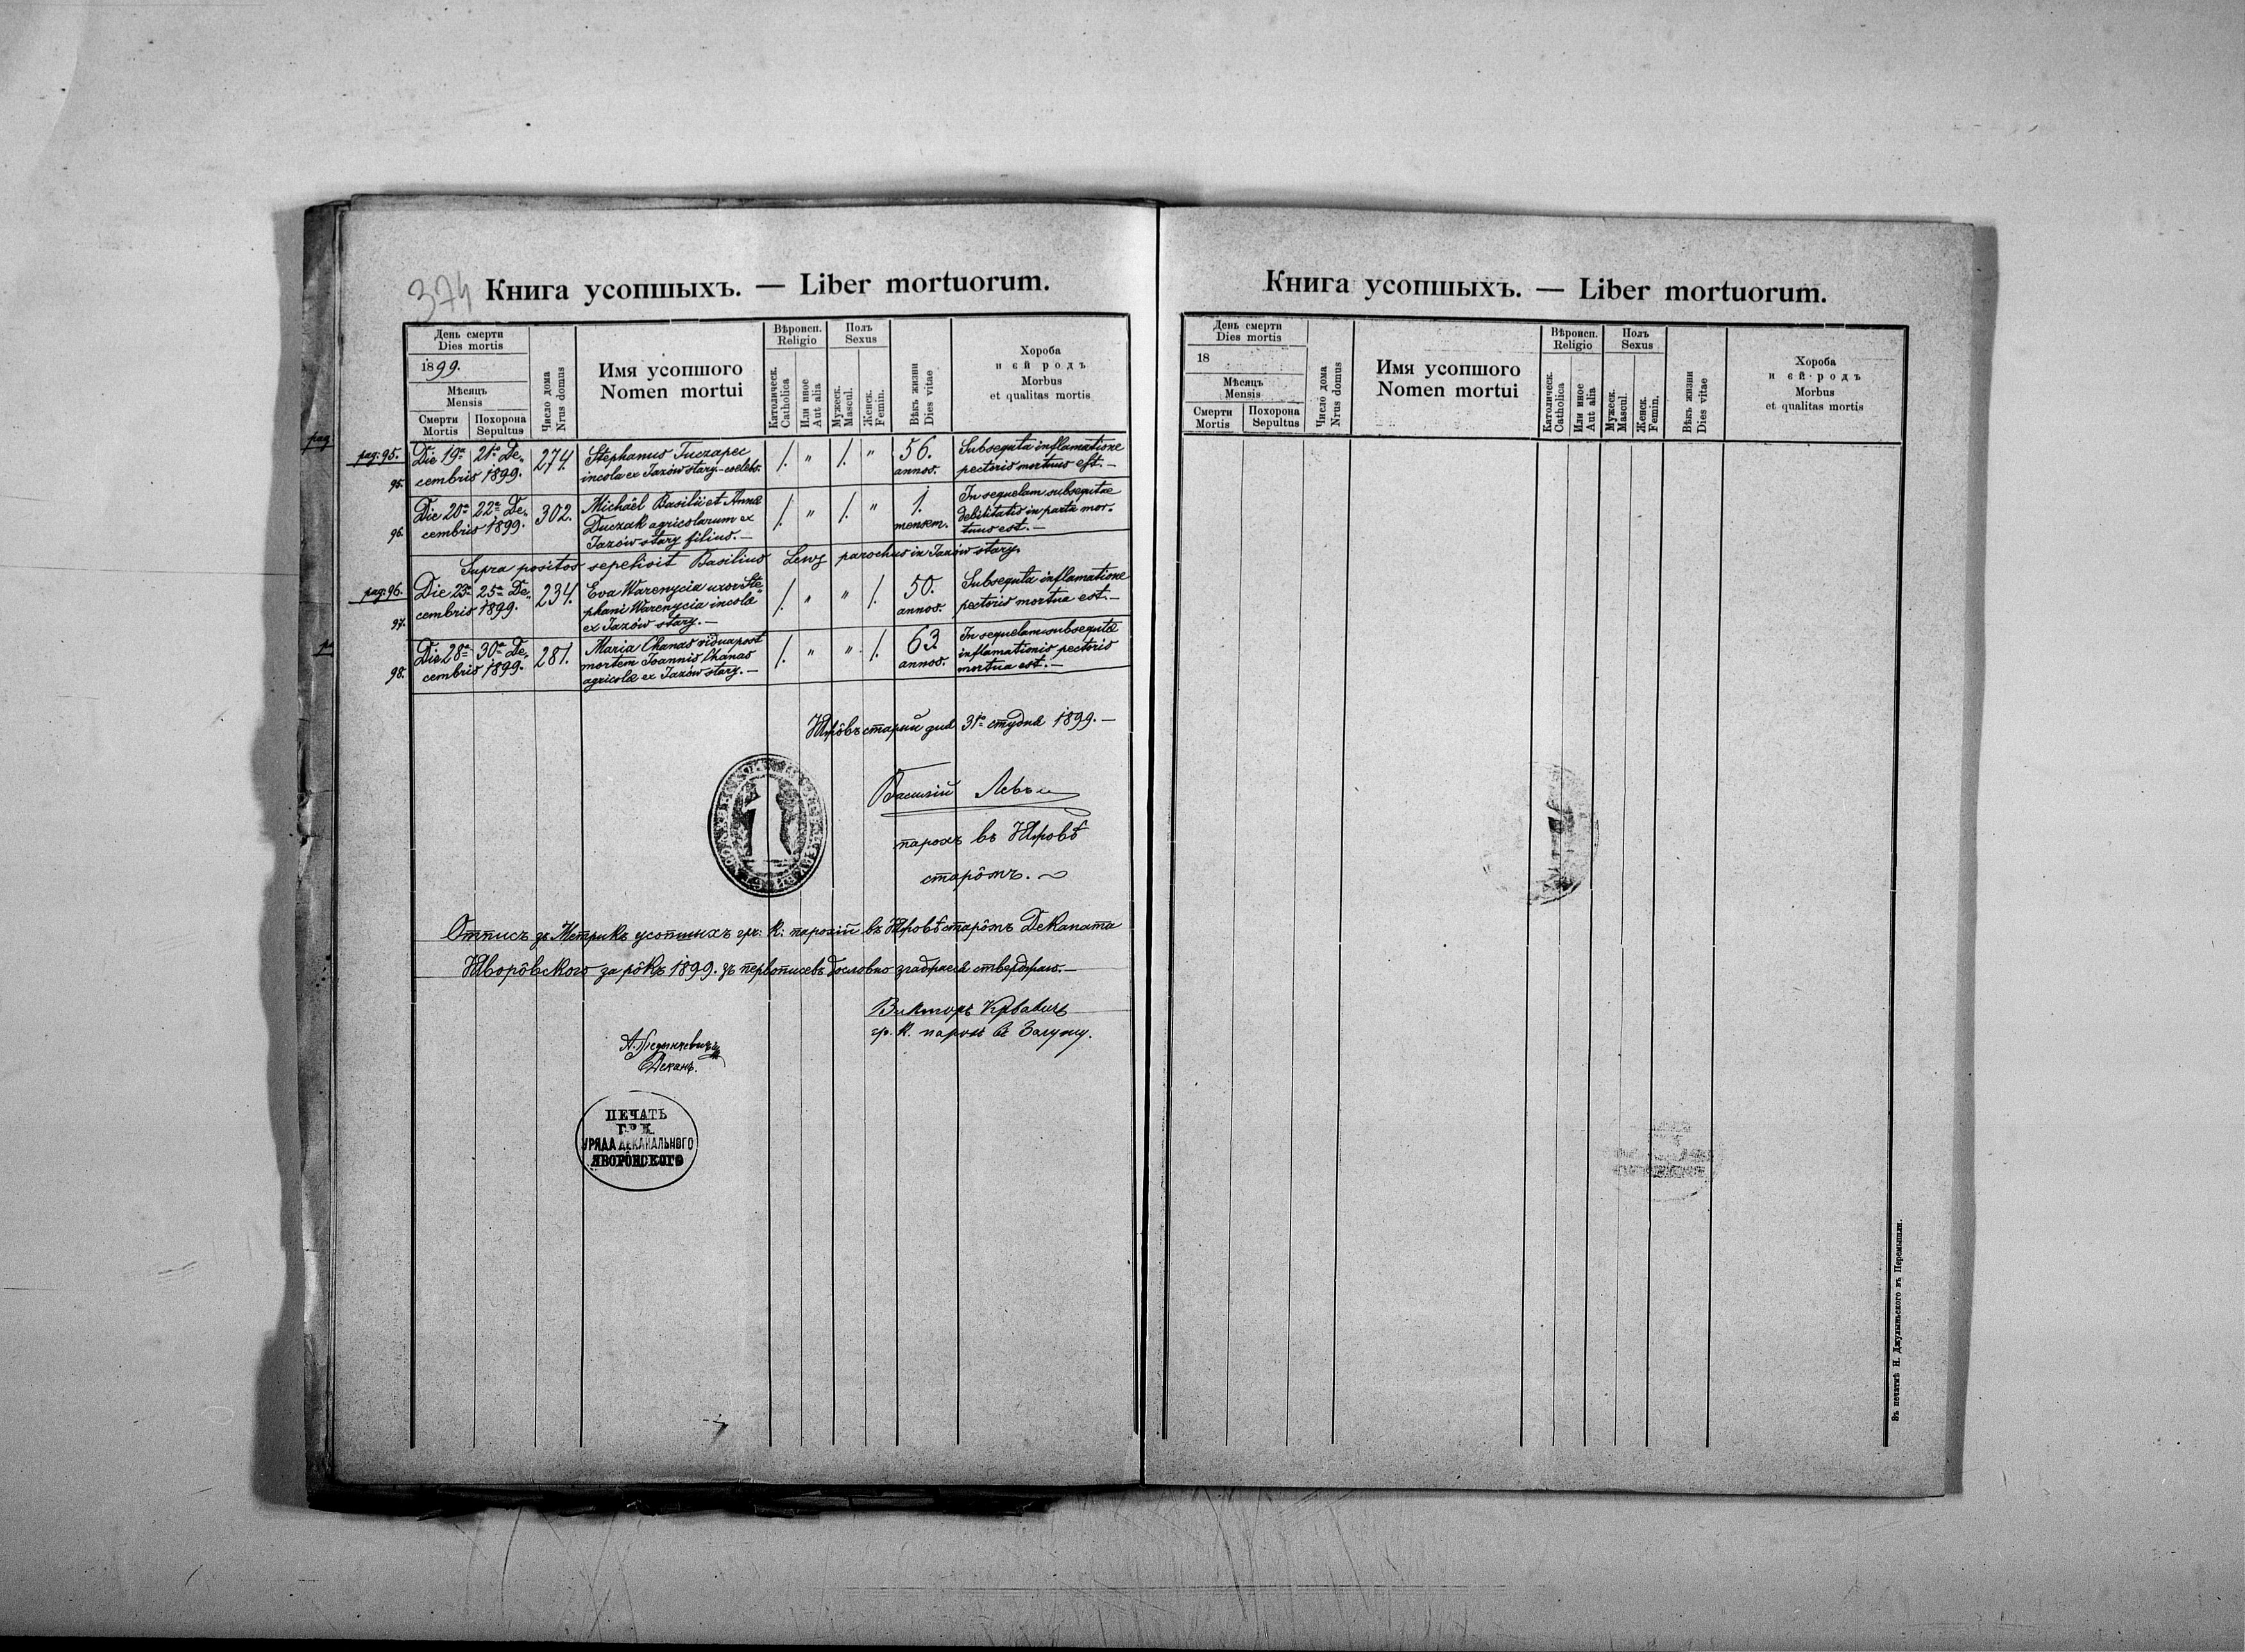 374
Книга усопшыхъ. — Liber mortuorum.
День смерти
Dies mortis
1899.
Мѣсяцъ
Mensis
Смерти
Mortis
Похорона
Sepultus
Число дома
Nrus domus
Имя усопшого
Nomen mortui
Вѣроисп.
Religio
Католическ.
Catholica
Или иное
Aut alia
Полъ
Sexus
Мужеск.
Mascul.
Женск.
Femin.
Вѣкъ жизни
Dies vitae
Хороба
и єй родъ
Morbus
et qualitas mortis
pag
pag: 95.
95.
Die 19a 21a De„
cembris 1899.
274.
Stephanus Tuczapec
incola ex Jazów stary. – coelebs.
1. " 1. "
56.
annos.
Subsequta inflamatione
pectoris mortuus est. —
96.
Die 20a 22a De„
cembris 1899.
302.
Michaël Basilii et Annae
Duczak agricolarum ex
Jazów stary filius. —
1. " 1. "
1.
mensem.
In sequelam subsequtae
debilitatis in partu mor„
tuus est. —
Supra positos sepelivit Basilius Lewy parochus in Jazów stary.
pag: 96.
97.
Die 23a 25a De„
cembris 1899.
234.
Eva Warenycia uxor Ste„
phani Warenycia incolae
ex Jazów stary. —
1. " " 1.
50.
annos.
Subsequta inflamatione
pectoris mortua est. —
98.
Die 28a 30a De„
cembris 1899.
281.
Maria Chanas vidua post
mortem Joannis Chanas
agricolae ex Jazów stary. —
1. " " 1.
63
annos.
In sequelam subsequtae
inflamationis pectoris
mortua est. —
старый дня 31го студня 1899. —
Василій
парохъ въ
старôмъ.
Отписъ зъ Метрикъ усопшыхъ гр: к: парохіи въ старôмъ Деканата
Яворôвского за рôкъ 1899. зъ первописевъ дословно згаджаєся стверджаю. —
Викторъ
гр. к. парох в
Деканъ.
ПЕЧАТЬ
ГР. К.
УРЯДА ДЕКАНАЛЬНОГО
ЯВОРÔВСКОГО
Книга усопшыхъ. — Liber mortuorum.
День смерти
Dies mortis
18
Мѣсяцъ
Mensis
Смерти
Mortis
Похорона
Sepultus
Число дома
Nrus domus
Имя усопшого
Nomen mortui
Вѣроисп.
Religio
Католическ.
Catholica
Или иное
Aut alia
Полъ
Sexus
Мужеск.
Mascul.
Женск.
Femin.
Вѣкъ жизни
Dies vitae
Хороба
и єй родъ
Morbus
et qualitas mortis
Зъ печатнѣ Н. Джулыньского въ Перемышли.